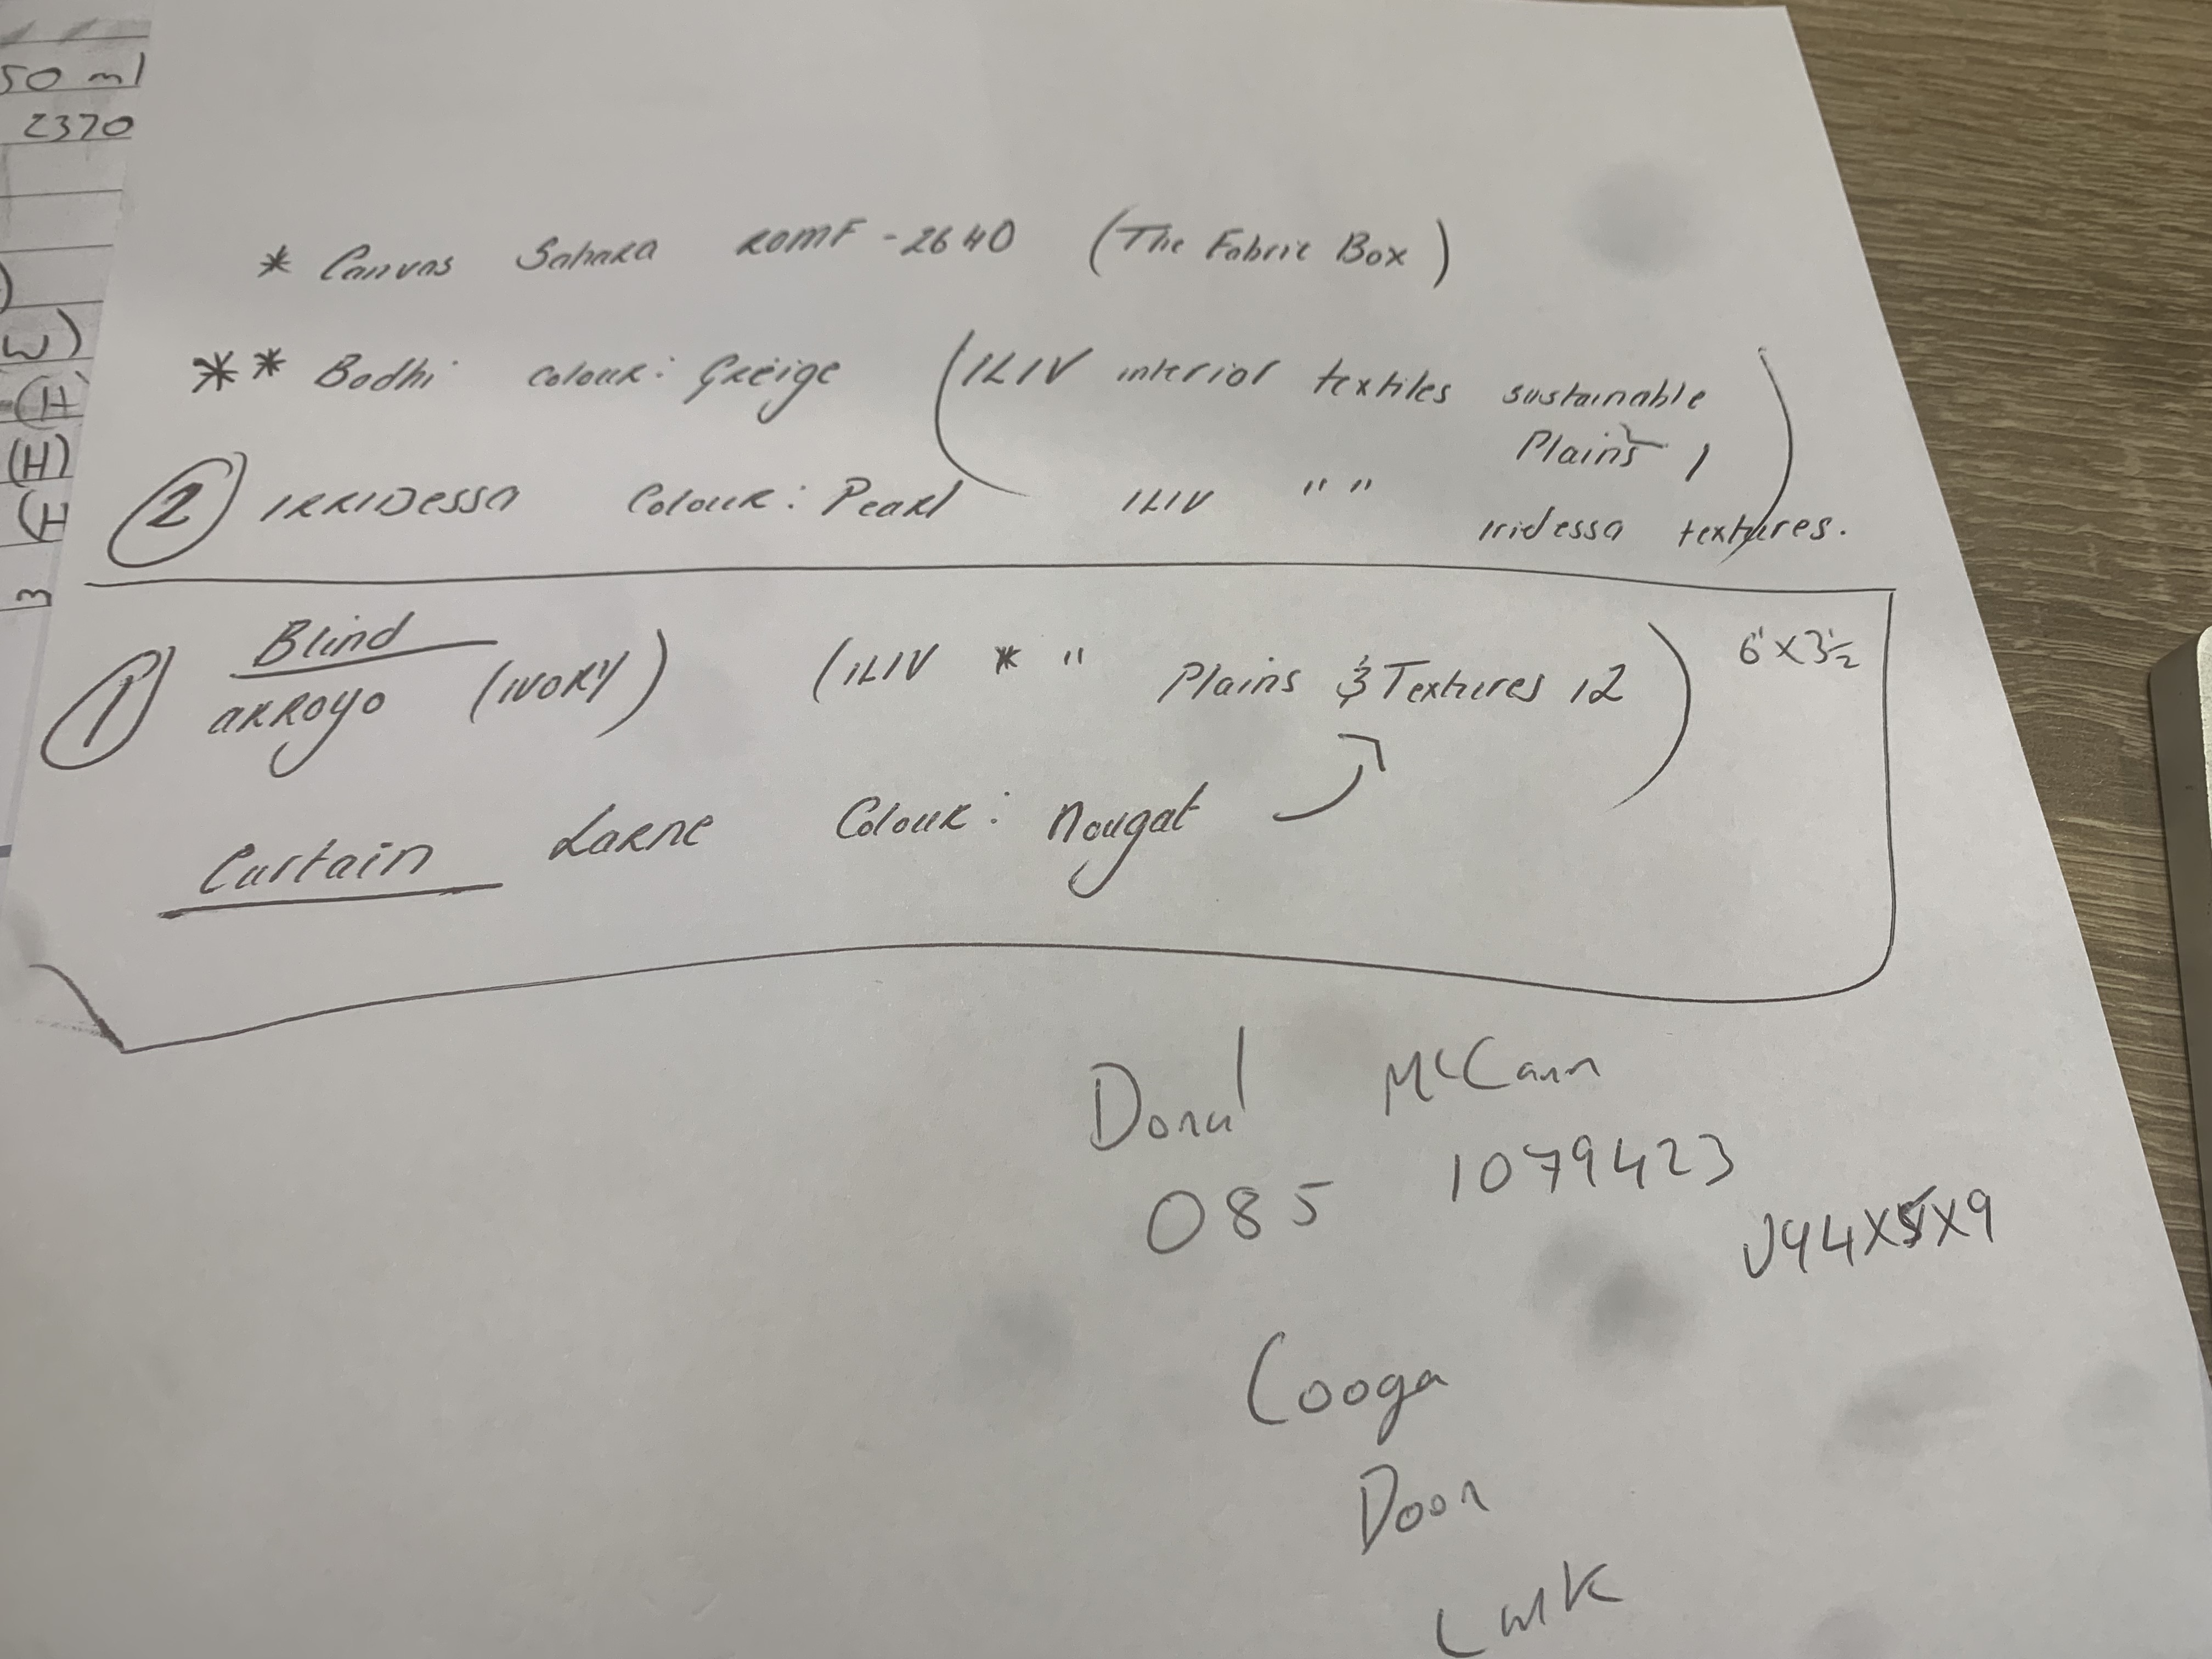 50 ml
2370
W)
(H)
(H)
(H
m
* Canvas Sahara ROMF-2640 (The Fabric Box)
** Bodhi colour: Greige (ILIV interior textiles sustainable
Plains 1
② IRRIDESSA Colour: Pearl ILIV " " Iridessa textures.)
Blind 6' x 3 1/2
① ARROYO (IVORY) (ILIV * " Plains & Textures 12)
Curtain Larne Colour: Nougat
Donal McCann
085 1079423
V94X5X9
Cooga
Doon